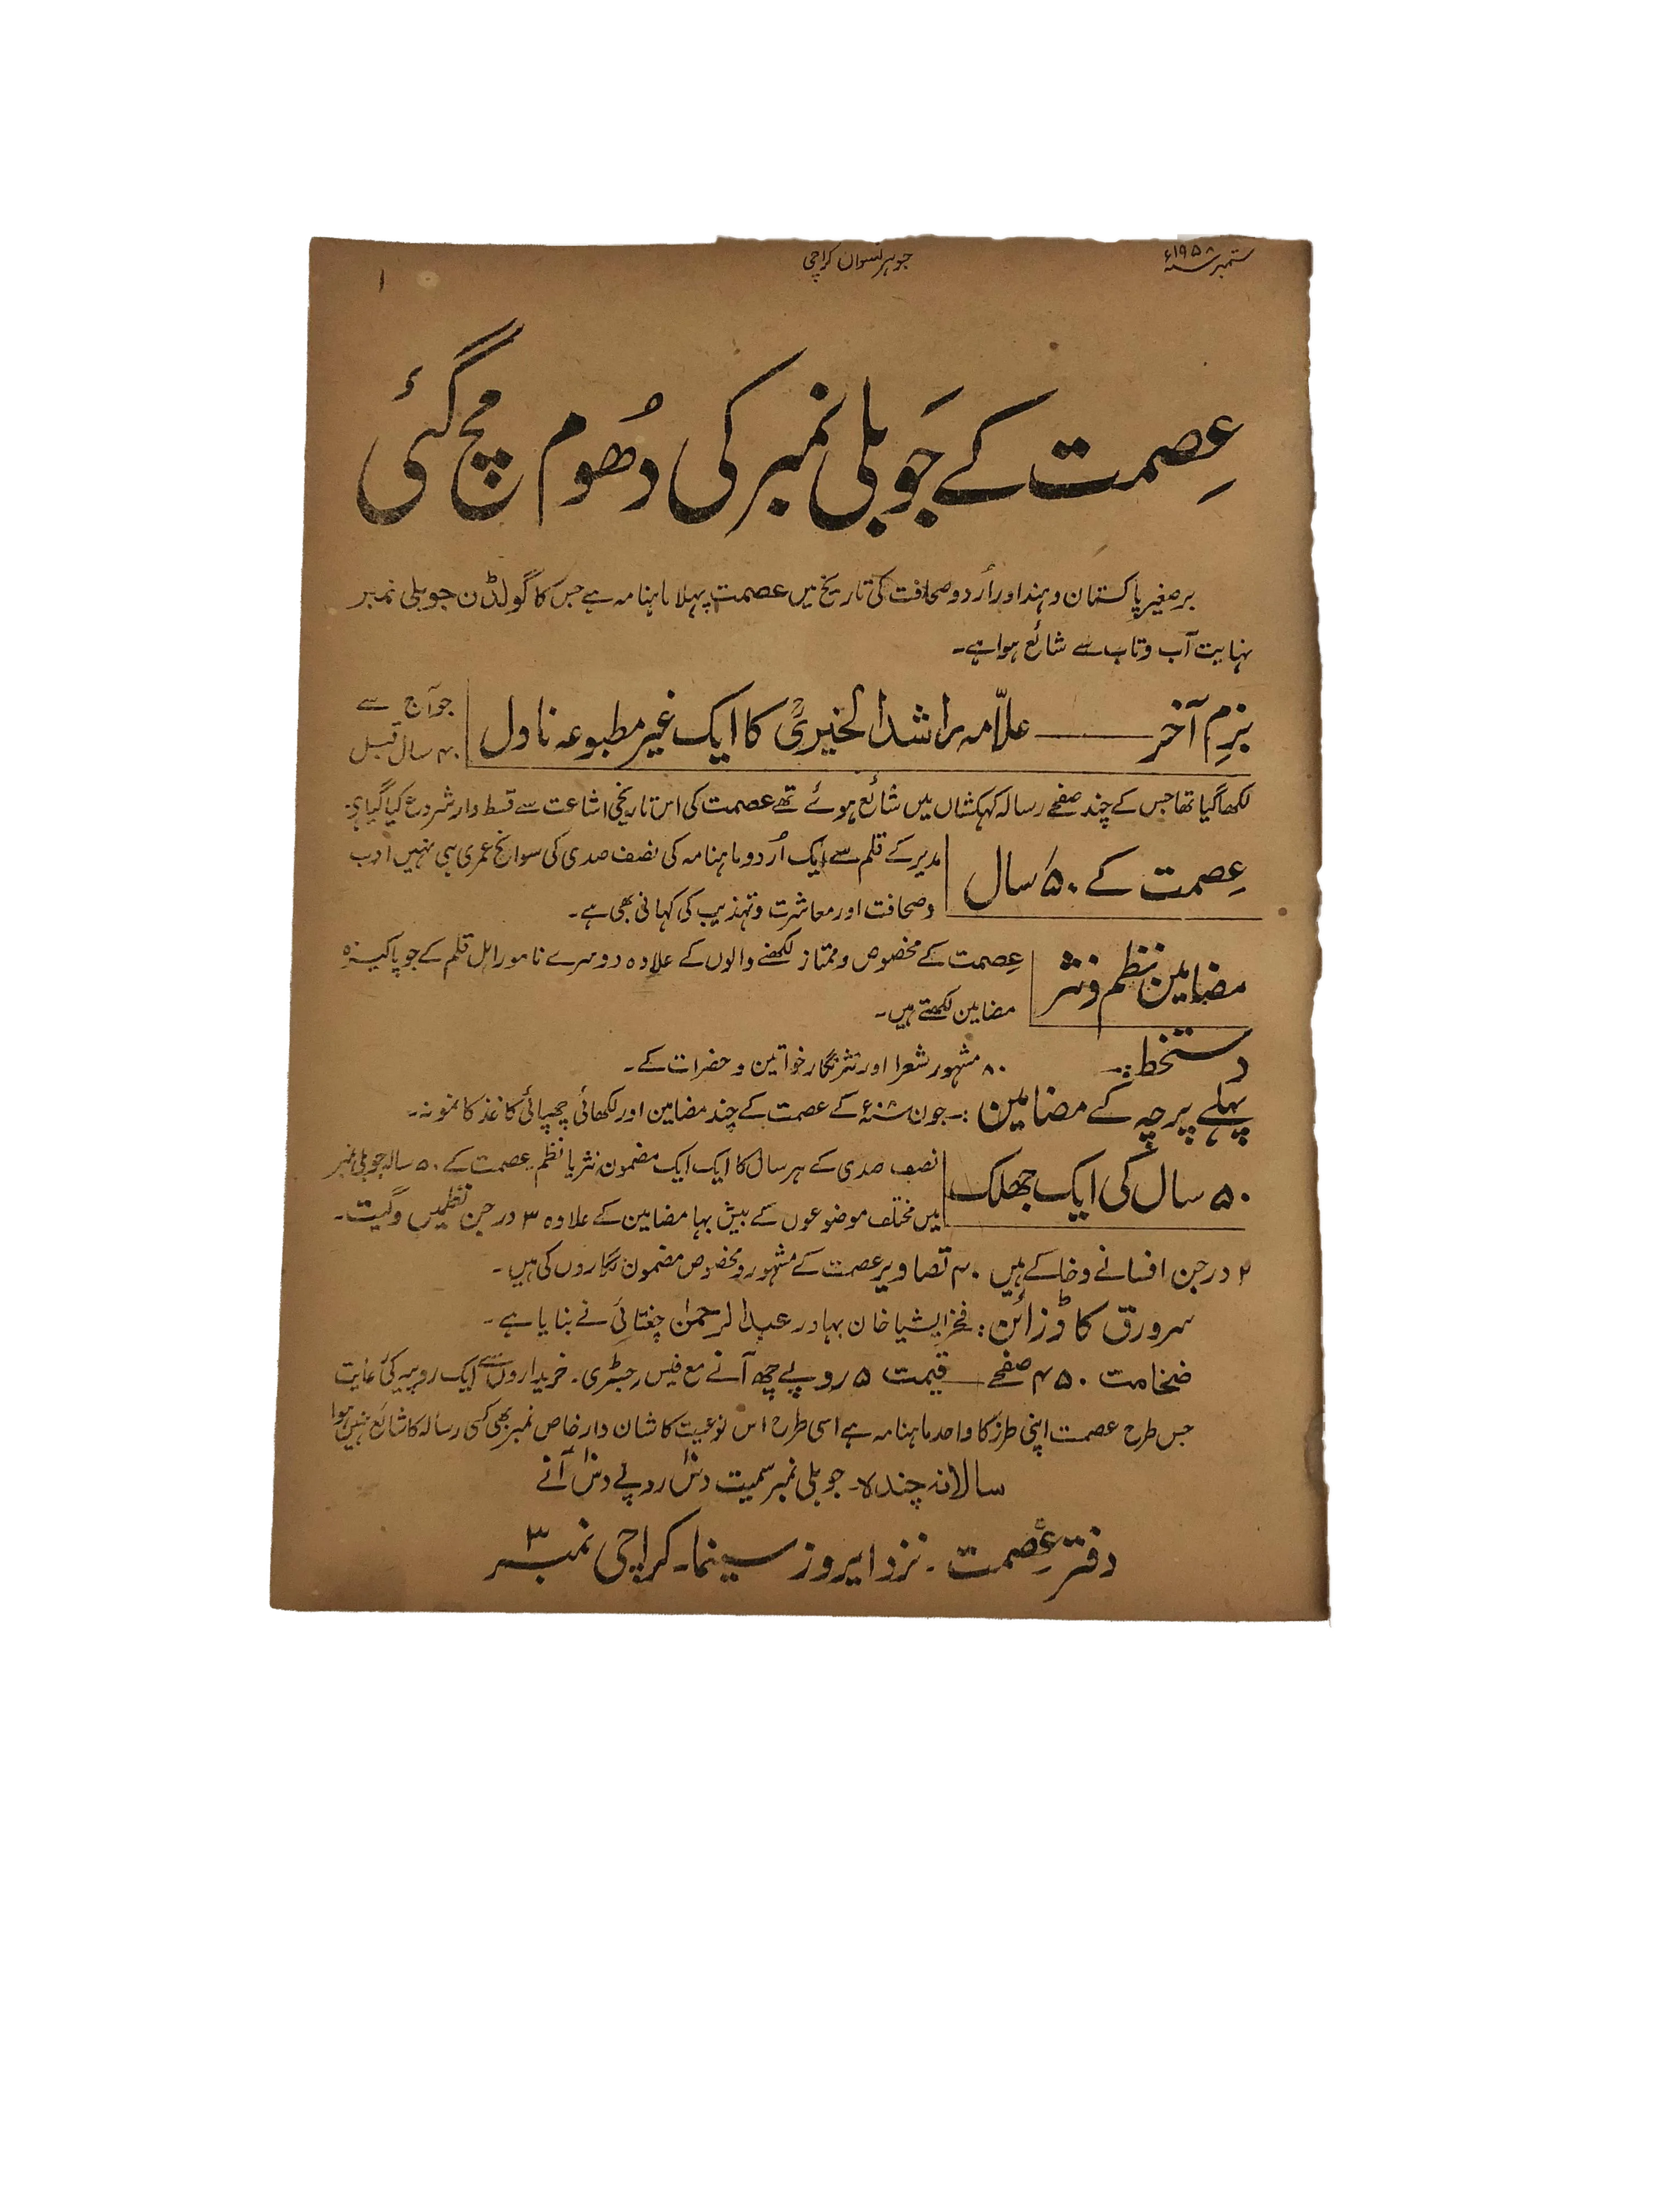 ستمبر ۱۹۵۸ء
جوہر نسواں کراچی
۱
عِصمت کے جَوبلی نمبر کی دھُوم مچ گئی
برصغیر پاکستان و ہند اور اُردو صحافت کی تاریخ میں عصمت پہلا ماہنامہ ہے جس کا گولڈن جوبلی نمبر
نہایت آب و تاب سے شائع ہوا ہے۔
بزمِ آخر —— علاّمہ راشد الخیریؒ کا ایک غیر مطبوعہ ناول
جو آج سے
۴۰ سال قبل
لکھا گیا تھا جس کے چند صفحے رسالہ کہکشاں میں شائع ہوئے تھے عصمت کی اس تاریخی اشاعت سے قسط وار شروع کیا گیا ہے۔
عِصمت کے ۵۰ سال
مدیر کے قلم سے ایک اُردو ماہنامہ کی نصف صدی کی سوانح عمری ہی نہیں ادب
و صحافت اور معاشرت و تہذیب کی کہانی بھی ہے۔
مضامین نظم و نثر
عِصمت کے مخصوص و ممتاز لکھنے والوں کے علاوہ دوسرے نامور اہل قلم کے جو پاکیزہ
مضامین لکھتے ہیں۔
دستخط :۔ ۸۰ مشہور شعرا اور نثر نگار خواتین و حضرات کے۔
پہلے پرچہ کے مضامین :۔ جون ۰۸ء کے عصمت کے چند مضامین اور لکھائی چھپائی کاغذ کا نمونہ۔
۵۰ سال کی ایک جھلک
نصف صدی کے ہر سال کا ایک ایک مضمون نثر یا نظم۔ عصمت کے ۵۰ سالہ جوبلی نمبر
میں مختلف موضوعوں کے بیش بہا مضامین کے علاوہ ۳ درجن نظمیں و گیت۔
۲ درجن افسانے و خاکے ہیں ۴۰ تصاویر عصمت کے مشہور و مخصوص مضمون نگاروں کی ہیں۔
سرورق کا ڈزائن : فخرِ ایشیا خان بہادر عبدالرحمٰن چغتائی نے بنایا ہے۔
ضخامت ۴۵۰ صفحے — قیمت ۵ روپے چھ آنے مع فیس رجسٹری۔ خریداروں سے ایک روپیہ کی رعایت
جس طرح عصمت اپنی طرز کا واحد ماہنامہ ہے اسی طرح اس نوعیت کا شان دار خاص نمبر بھی کسی رسالہ کا شائع نہیں ہوا
سالانہ چندہ۔ جوبلی نمبر سمیت دس روپے دس آنے
دفتر عِصمت ۔ نزد ایروز سینما۔ کراچی نمبر ۳